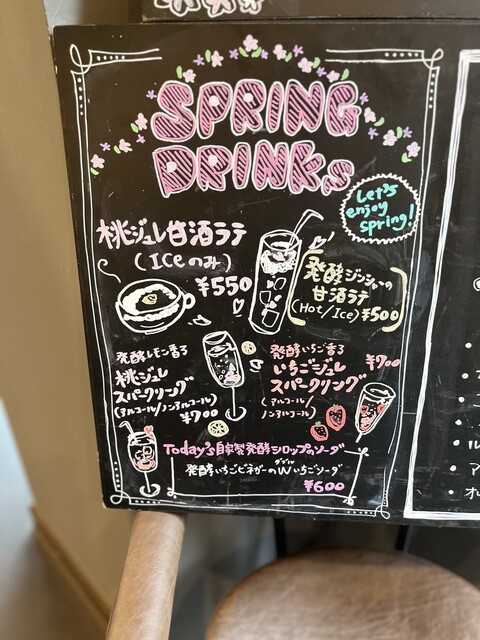 SPRING
DRINKs
Let's
enjoy
spring!
桃ジュレ甘酒ラテ
(Iceのみ)
¥550
発酵ジンジャーの
甘酒ラテ
(Hot/Ice) ¥500
発酵レモン香る
桃ジュレ
スパークリング
(アルコール/ノンアルコール)
¥700
発酵いちご香る
いちごジュレ
スパークリング
¥700
(アルコール/
ノンアルコール)
Today's自家製発酵シロップのソーダ
ダブル
発酵いちごビネガーのWいちごソーダ
¥600